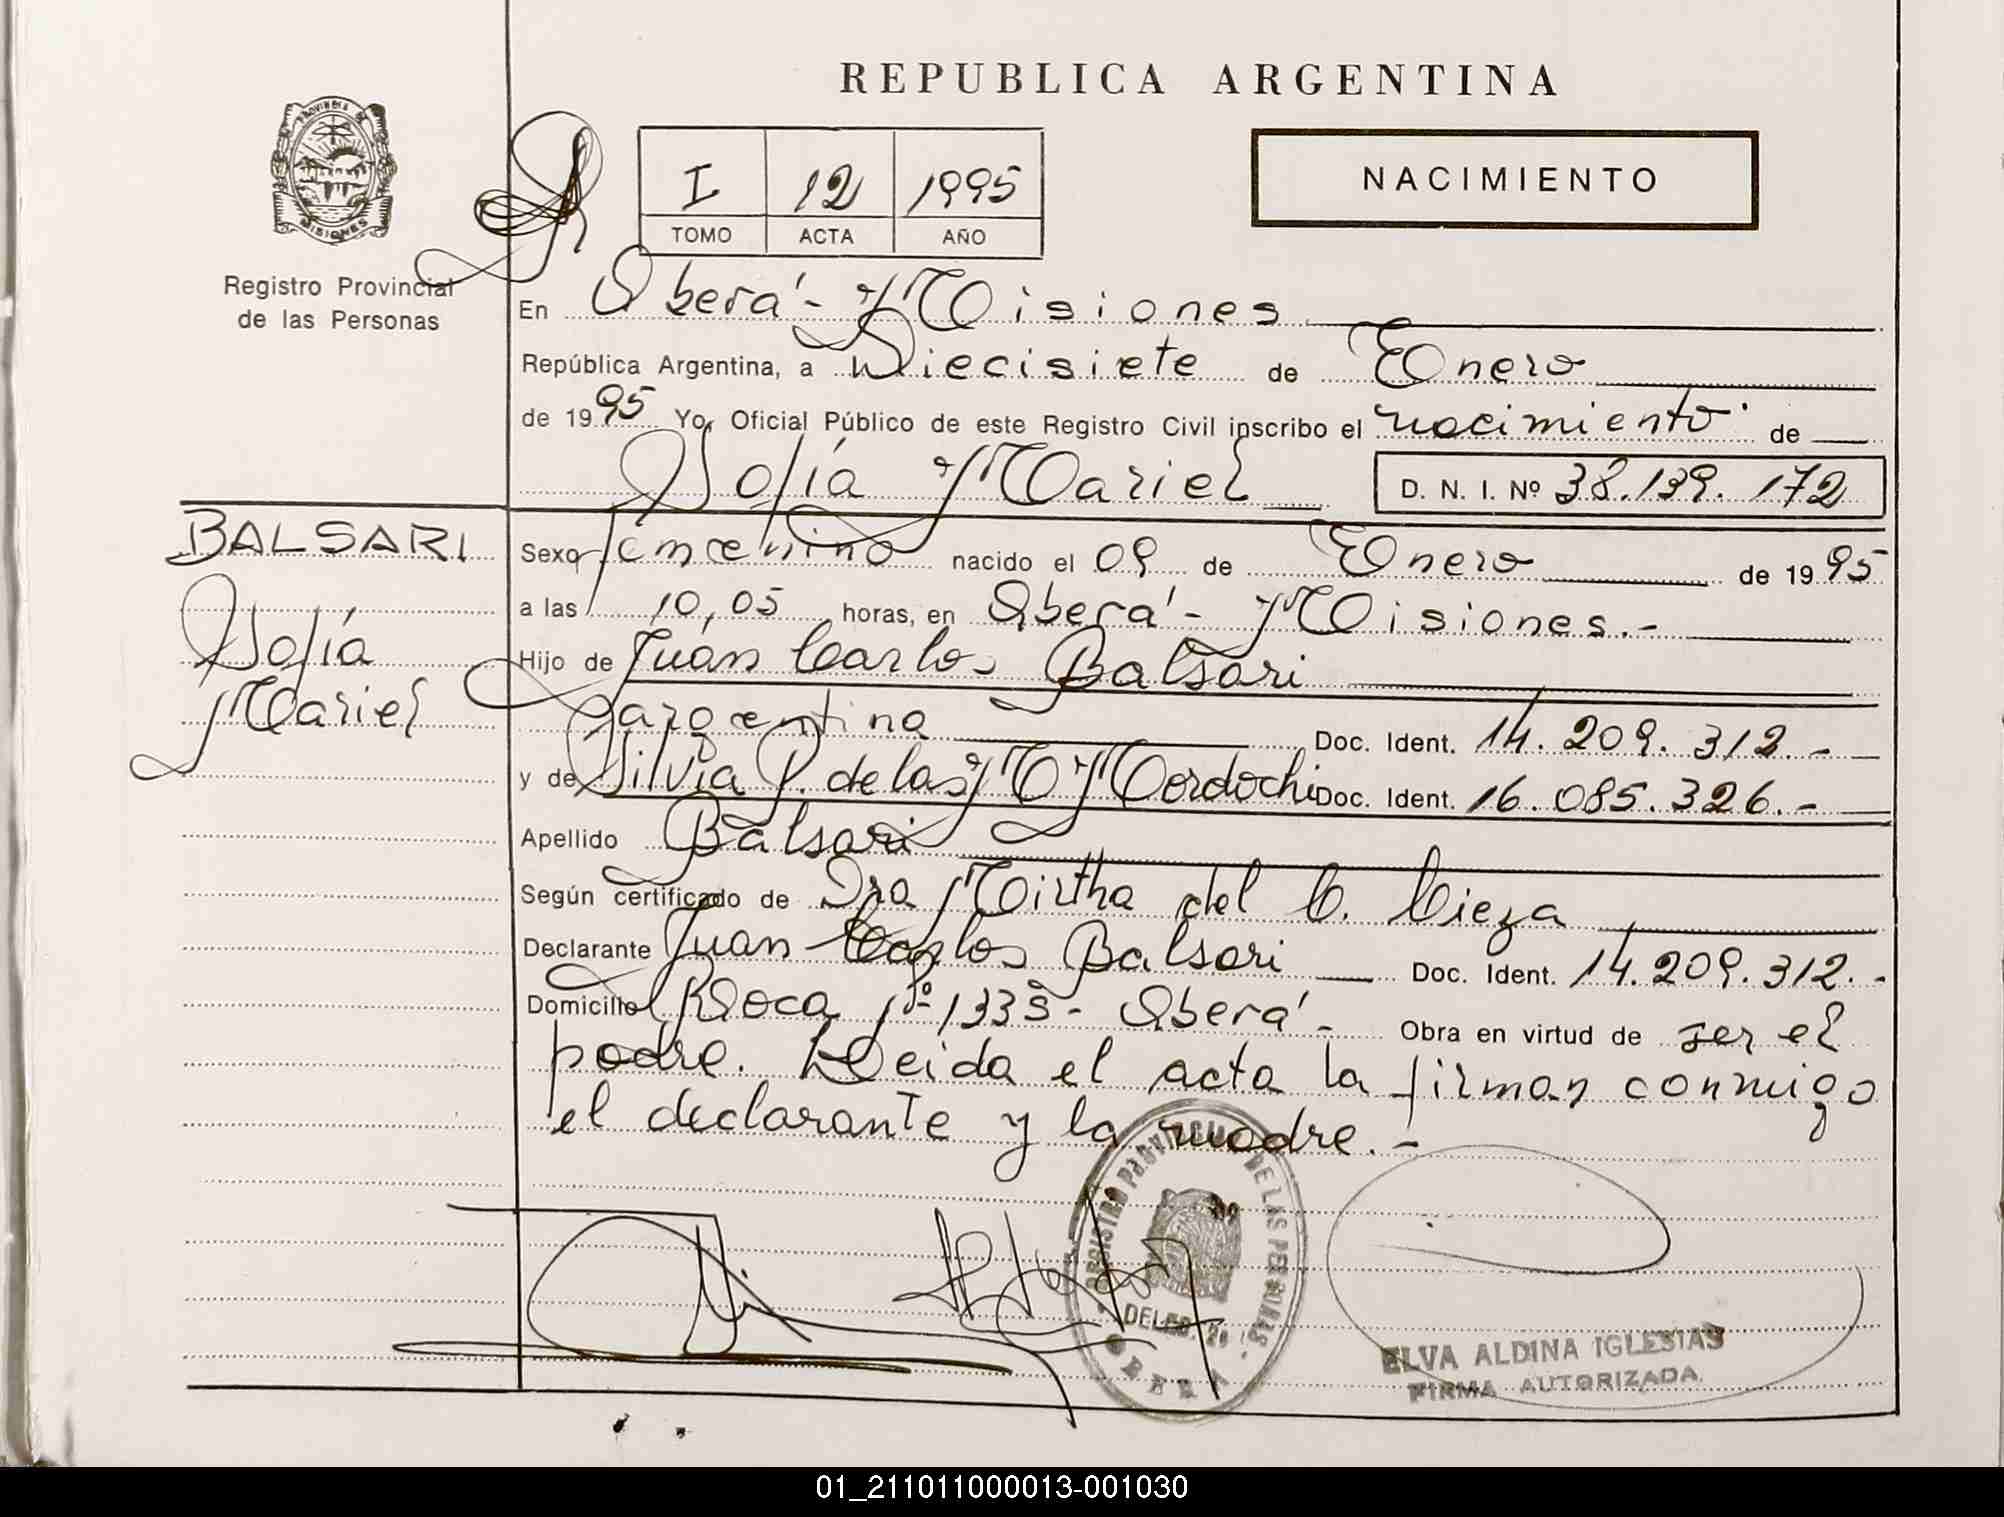 REPUBLICA ARGENTINA
PROVINCIA DE MISIONES
Registro Provincial
de las Personas
I 12 1995
TOMO ACTA AÑO
NACIMIENTO
En Oberá - Misiones
República Argentina, a Diecisiete de Enero
de 1995 Yo, Oficial Público de este Registro Civil inscribo el nacimiento de
Sofía Mariel D. N. I. Nº 38.139.172
BALSARI
Sofía
Mariel
Sexo femenino nacido el 09 de Enero de 1995
a las 10,05 horas, en Oberá - Misiones.-
Hijo de Juan Carlos Balsari
argentino Doc. Ident. 14.209.312.-
y de Silvia P. de las M Mordochi Doc. Ident. 16.085.326.-
Apellido Balsari
Según certificado de Dra Mirtha del C. Cieza
Declarante Juan Carlos Balsari Doc. Ident. 14.209.312.-
Domicilio Roca nº 1335 - Oberá - Obra en virtud de ser el
padre. Leida el acta la firman conmigo
el declarante y la madre.-
REGISTRO PROVINCIAL DE LAS PERSONAS
OBERA
ELVA ALDINA IGLESIAS
FIRMA AUTORIZADA
01_211011000013-001030